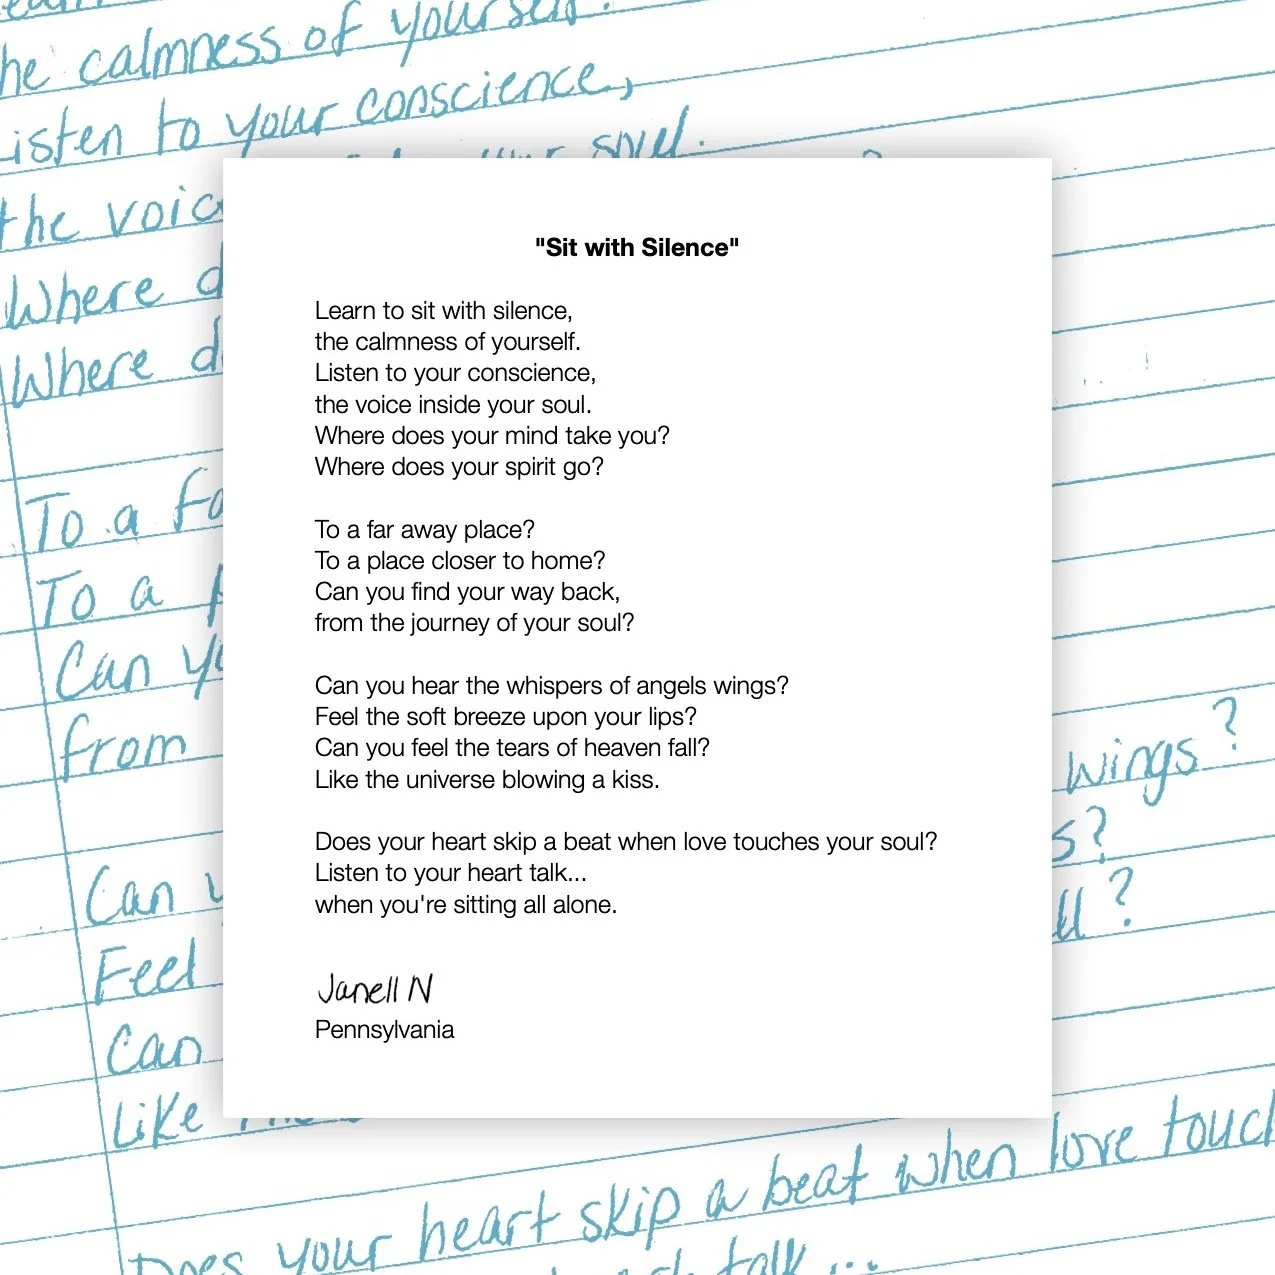 he calmness of yourself.
Listen to your conscience,
the voic your soul.
Where d
Where d
To a fa
To a
Can yo
from
wings?
s?
Can ll?
Feel
Can
Like the
Does your heart skip a beat when love touch
talk...
"Sit with Silence"
Learn to sit with silence,
the calmness of yourself.
Listen to your conscience,
the voice inside your soul.
Where does your mind take you?
Where does your spirit go?
To a far away place?
To a place closer to home?
Can you find your way back,
from the journey of your soul?
Can you hear the whispers of angels wings?
Feel the soft breeze upon your lips?
Can you feel the tears of heaven fall?
Like the universe blowing a kiss.
Does your heart skip a beat when love touches your soul?
Listen to your heart talk...
when you're sitting all alone.
Janell N
Pennsylvania